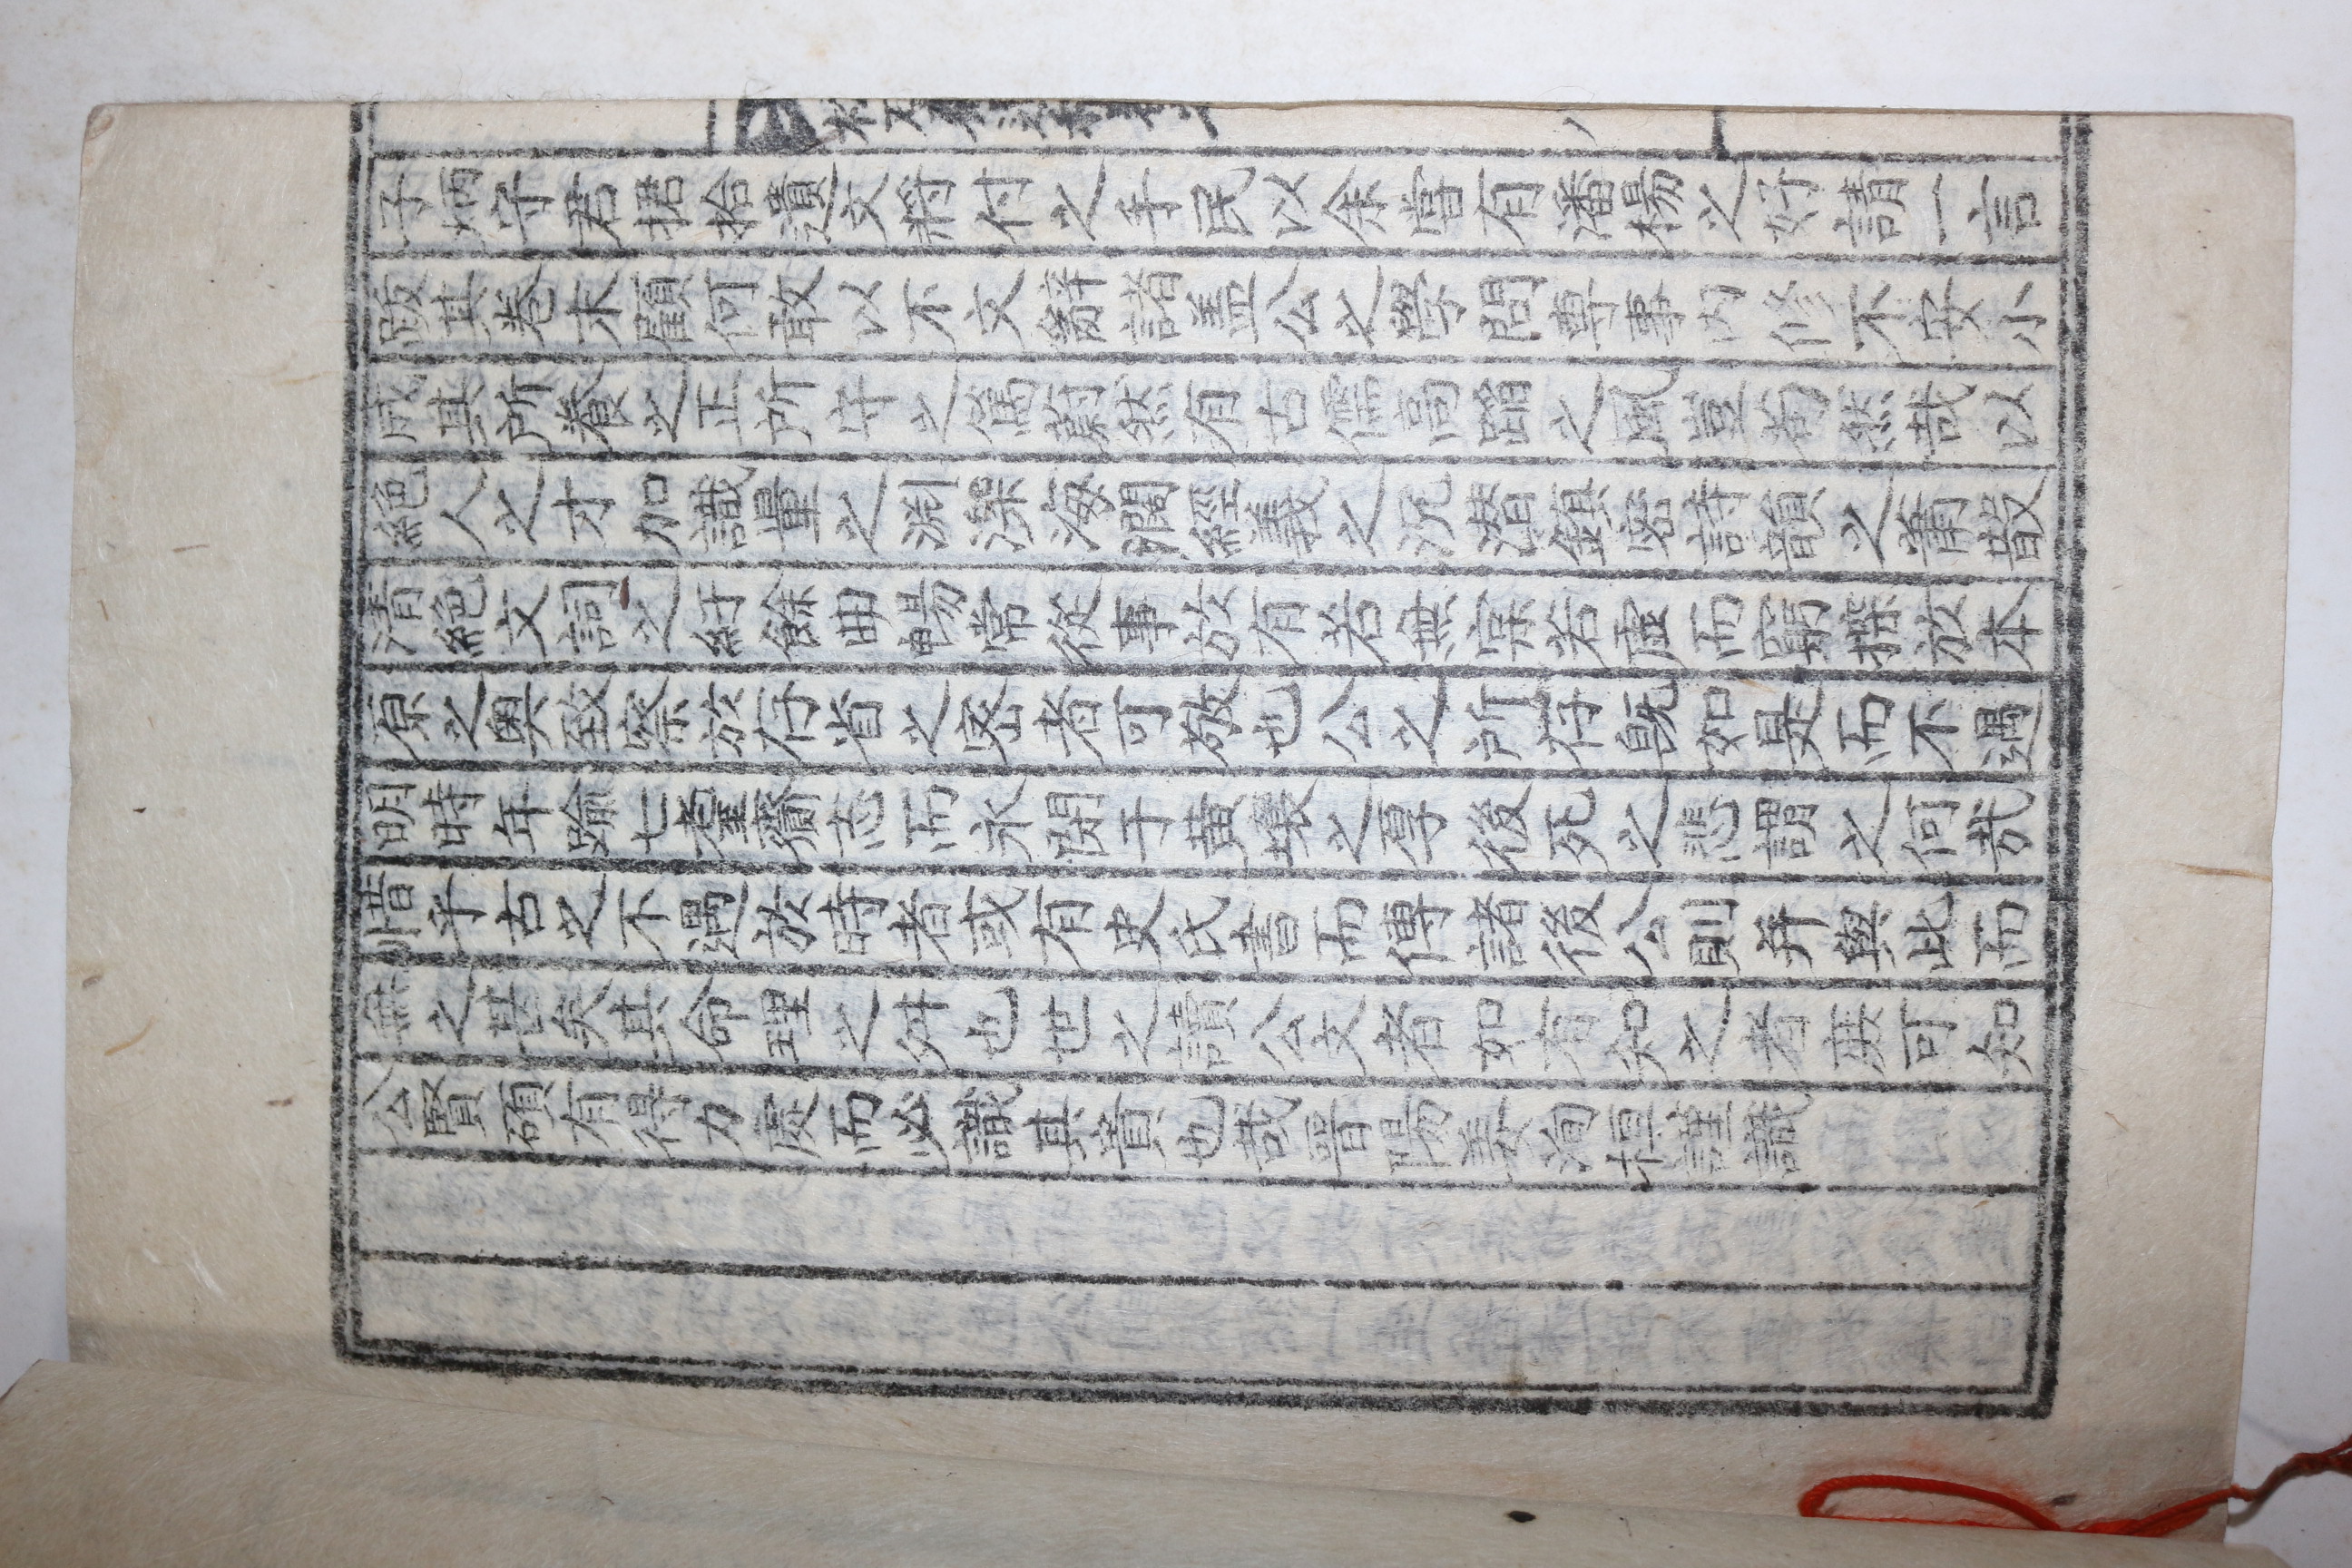 子炳守君捃拾遺文將付之手民以余嘗有潘楊之好請一言
跋其卷末顧何敢以不文辭諸盖公之學問專事內修不安小
成其所養之正所守之篤蔚然有古儒高蹈之風豈苟然哉以
絶人之才加識量之渊深海濶經義之沉潜鎮密詩韻之蕭散
清絶文詞之紆餘曲暢常從事於有若無宲若虛而窮探於本
原之奥致察於存省之密者可敬也公之所存旣如是而不遇
明時年踰七耋齎志而永閉于黄壤之厚後死之悲謂之何哉
惜乎古之不遇於時者或有史氏書而傳諸後公則并與此而
無之甚矣其命理之舛也世之讀公文者如有知之者庶可知
公賢碩有得力處而必識其貴也哉晉陽姜洵桓謹識